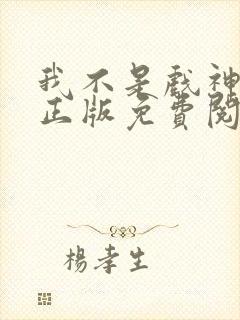 我不是戲神
正版免費閱
楊孝生